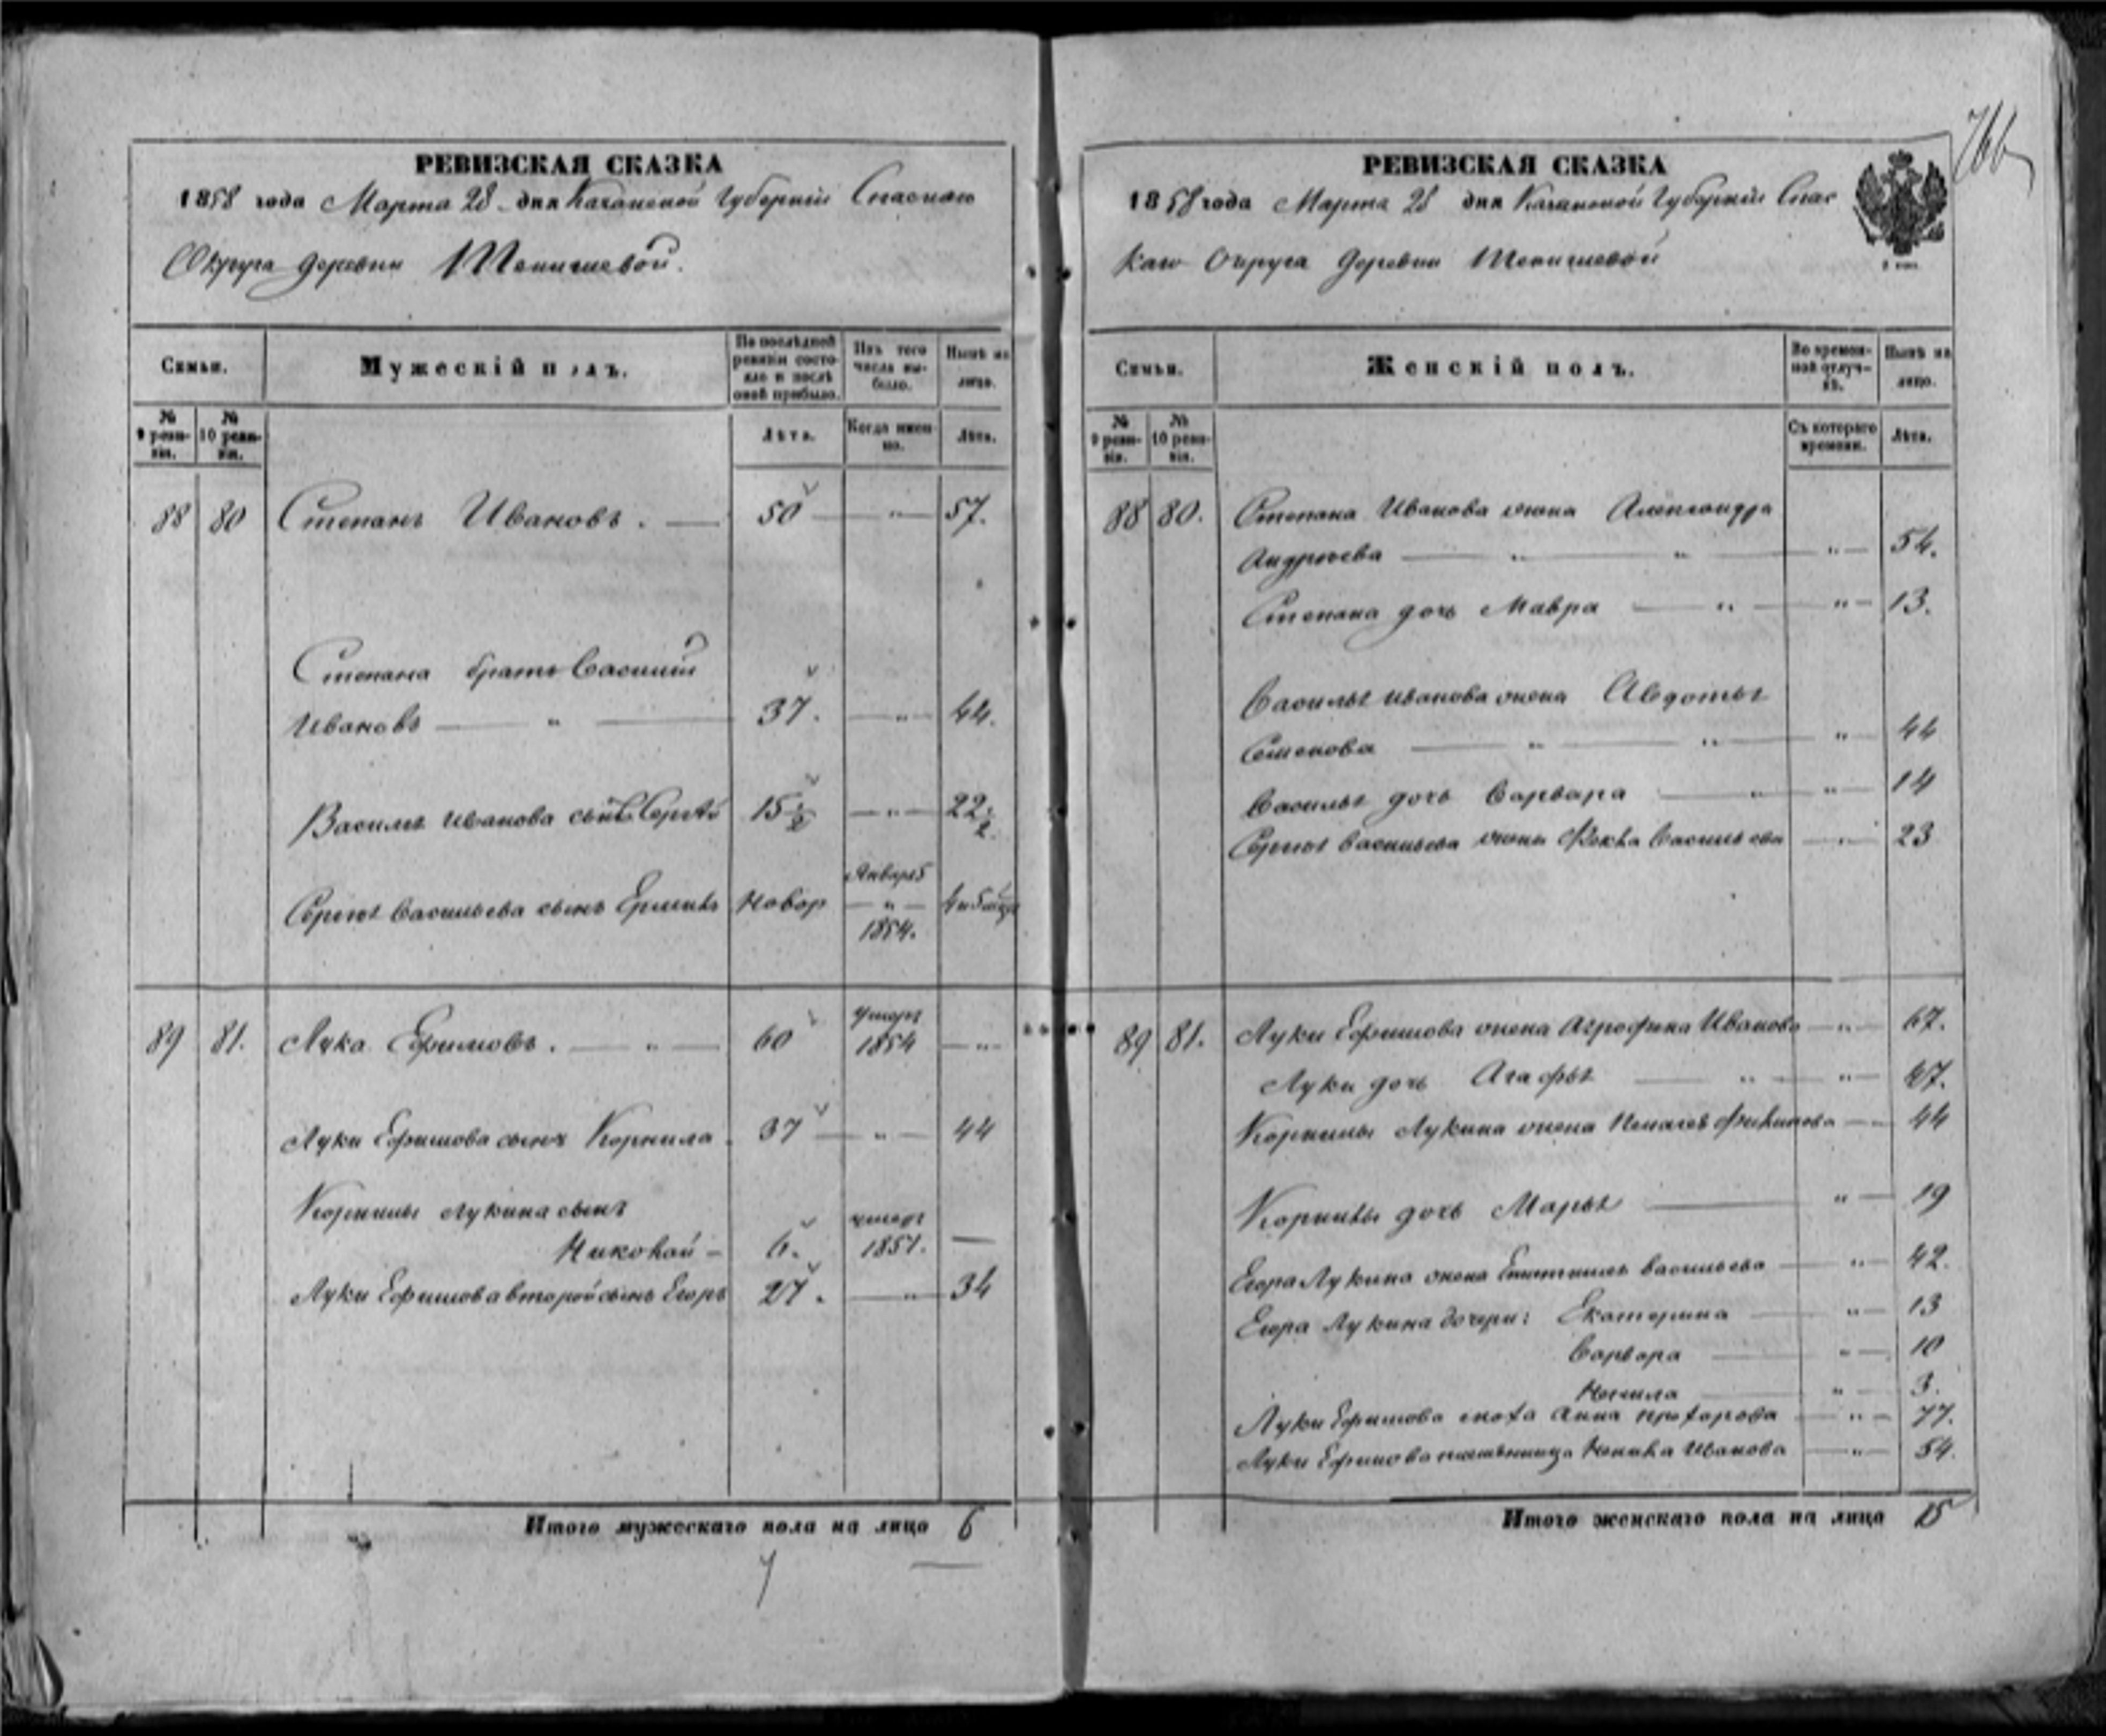 РЕВИЗСКАЯ СКАЗКА
1858 года Марта 28 дня Казанской Губерніи Спаскаго
Округа деревни
Семьи.
Мужескій полъ.
По послѣдней ревизіи состояло и послѣ оной прибыло.
Изъ того числа выбыло.
Нынѣ на лицо.
№ 9 ревизіи.
№ 10 ревизіи.
Лѣта.
Когда именно.
Лѣта.
88 80 Степанъ Ивановъ. — 50 — „ — 57.
Степана братъ Василій
Ивановъ — „ — 37. — „ — 44.
Василья Иванова сынъ Сергѣй 15 ½ — „ — 22 ½
Сергея Васильева сынъ Новор Января 5 — „ — 1854.
89 81. Лука Ефимовъ. — „ — 60 умеръ 1854 — „ —
Луки Ефимова сынъ Корнила. 37 — „ — 44
Корнилы Лукина сынъ
Николай — 6. умеръ 1851. —
Луки Ефимова второй сынъ Егоръ 27. — „ — 34
Итого мужескаго пола на лицо 6
7
РЕВИЗСКАЯ СКАЗКА
766
1858 года Марта 28 дня Казанской Губерніи Спас
каго Округа деревни
Семьи.
Женскій полъ.
Во временной отлучкѣ.
Нынѣ на лицо.
№ 9 ревизіи.
№ 10 ревизіи.
Съ котораго времени.
Лѣта.
88 80. Степана Иванова жена Александра
Андреева — „ — „ — „ — 54.
Степана дочь Мавра — „ — „ — 13.
Василья Иванова жена Авдотья
Семенова — „ — „ — „ — 44
Василья дочь Варвара — „ — „ — 14
Сергея Васильева жена Васильева — „ — 23
89 81. Луки Ефимова жена Агрофина Иванова — „ — 67.
Луки дочь Агафья — „ — „ — 27.
Корнилы Лукина жена — 44
Корнилы дочь Марья — „ — 19
Егора Лукина жена Васильева — „ — 42.
Егора Лукина дочери: Екатерина — „ — 13
Варвара — „ — 10
— „ — 3.
Луки Ефимова Анна — „ — 77.
Луки Ефимова Иванова — „ — 54.
Итого женскаго пола на лицо 15